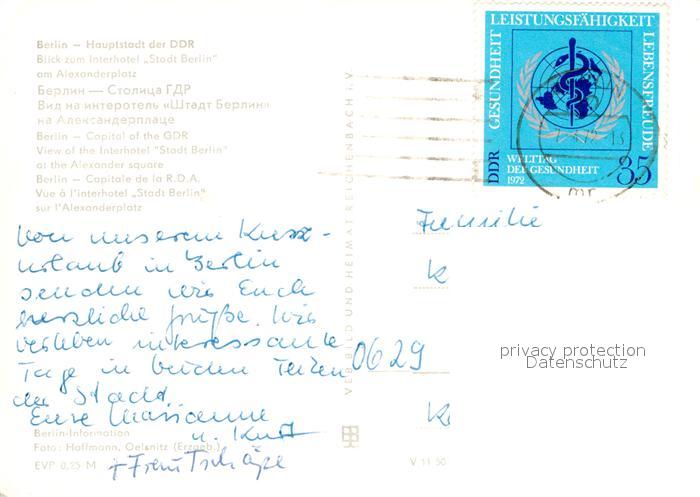 Berlin — Hauptstadt der DDR
Blick zum Interhotel „Stadt Berlin"
am Alexanderplatz
Берлин — Столица ГДР
Вид на интеротель «Штадт Берлин»
на Александерплаце
Berlin — Capital of the GDR
View of the Interhotel "Stadt Berlin"
at the Alexander square
Berlin — Capitale de la R.D.A.
Vue à l'interhotel „Stadt Berlin"
sur l'Alexanderplatz
Von unserem Kurz-
urlaub in Berlin
senden wir Euch
herzliche Grüße. Wir
verleben interessante
Tage in beiden Teilen
der Stadt.
Eure Marianne
u. Kurt
+ Frau Tschäpe
Berlin-Information
Foto: Hoffmann, Oelsnitz (Erzgeb.)
EVP 0,25 M
V 11 50
VEB BILD UND HEIMAT REICHENBACH i. V.
GESUNDHEIT LEISTUNGSFÄHIGKEIT LEBENSFREUDE
DDR
WELTTAG
DER GESUNDHEIT
1972
35
Familie
K
0629
K
privacy protection
Datenschutz